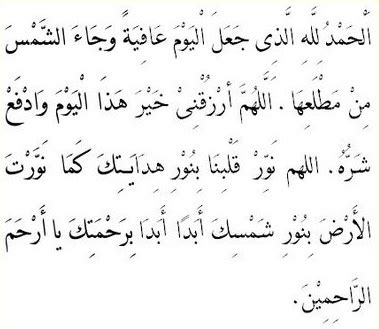 اَلْحَمْدُ لِلَّهِ الَّذِى جَعَلَ الْيَوْمَ عَافِيَةً وَجَاءَ الشَّمْسَ
مِنْ مَطْلَعِهَا . اَللَّهُمَّ أرْزُقْنِىْ خَيْرَ هَذَا الْيَوْمَ وَادْفَعْ
شَرُّهُ. اللهم نَوِّرْ قَلْبِنَا بِنُوْرِ هِدَايَتِكَ كَمَا نَوَّرْتَ
الأَرْضَ بِنُوْرِ شَمْسِكَ أَبَدًا أَبَدا بِرَحْمَتِكَ يا أَرْحَمَ
الرَّاحِمِيْنَ.